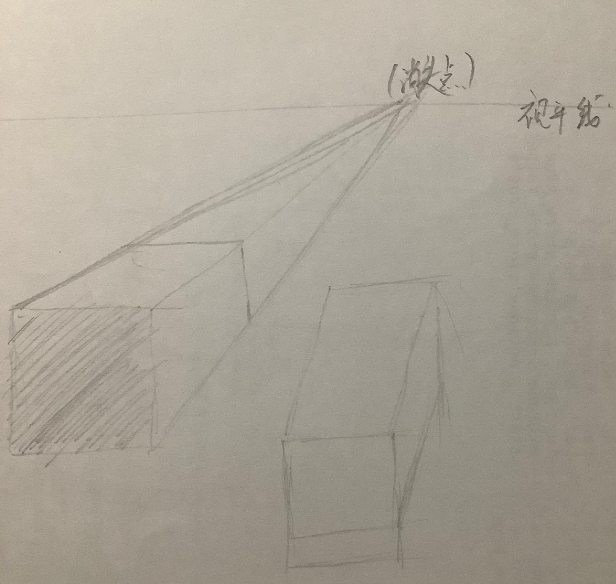 (消失点)
视平线